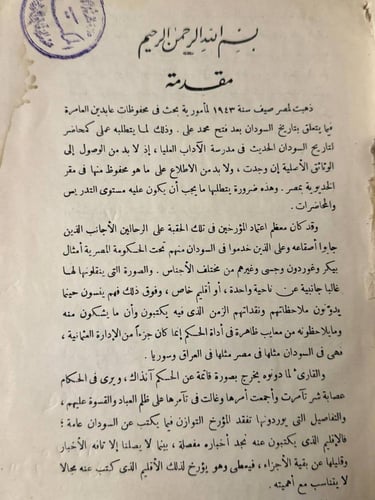 بسم الله الرحمن الرحيم
مقدمة
ذهبت لمصر صيف سنة ١٩٤٣ لمأمورية بحث فى محفوظات عابدين العامرة
فيما يتعلق بتاريخ السودان بعد فتح محمد على . وذلك لما يتطلبه عملى كمحاضر
لتاريخ السودان الحديث فى مدرسة الآداب العليا ، إذ لا بد من الوصول إلى
الوثائق الأصلية إن وجدت ، ولا بد من الاطلاع على ما هو محفوظ منها فى مقر
الخديوية بمصر . وهذه ضرورة يتطلبها ما يجب أن يكون عليه مستوى التدريس
والمحاضرات .
وقد كان معظم اعتماد المؤرخين فى تلك الحقبة على الرحالين الأجانب الذين
جابوا أصقاعه وعلى الذين خدموا فى السودان منهم تحت الحكومة المصرية أمثال
بيكر وغوردون وجسى وغيرهم من مختلف الأجناس . والصورة التى ينقلونها لنا
غالبا جانبية عن ناحية واحدة ، أو أقليم خاص ، وفوق ذلك فهم ينسون حينما
يدوّنون ملاحظاتهم ونقداتهم الزمن الذى فيه يكتبون وأن ما يشكون منه
وما يلاحظونه من معايب ظاهرة فى أداة الحكم إنما كان جزءاً من الإدارة العثمانية ،
فهى فى السودان مثلها فى مصر مثلها فى العراق وسوريا .
والقارئ لما دونوه يخرج بصورة قاتمة عن الحكم آنذاك ، ويرى فى الحكام
عصابة شر تآمرت وأجمعت أمرها وغالت فى تآمرها على ظلم العباد والقسوة عليهم ،
والتفاصيل التى يوردونها تفقد المؤرخ التوازن فيما يكتب عن السودان عامة ؛
فالإقليم الذى يكتبون عنه نجد أخباره مفصلة ، بينما لا يصلنا إلا تافه الأخبار
وقليلها عن بقية الأجزاء ، فيعطى وهو يؤرخ لذلك الأقليم الذى كتب عنه مجالا
لا يتناسب مع أهميته .